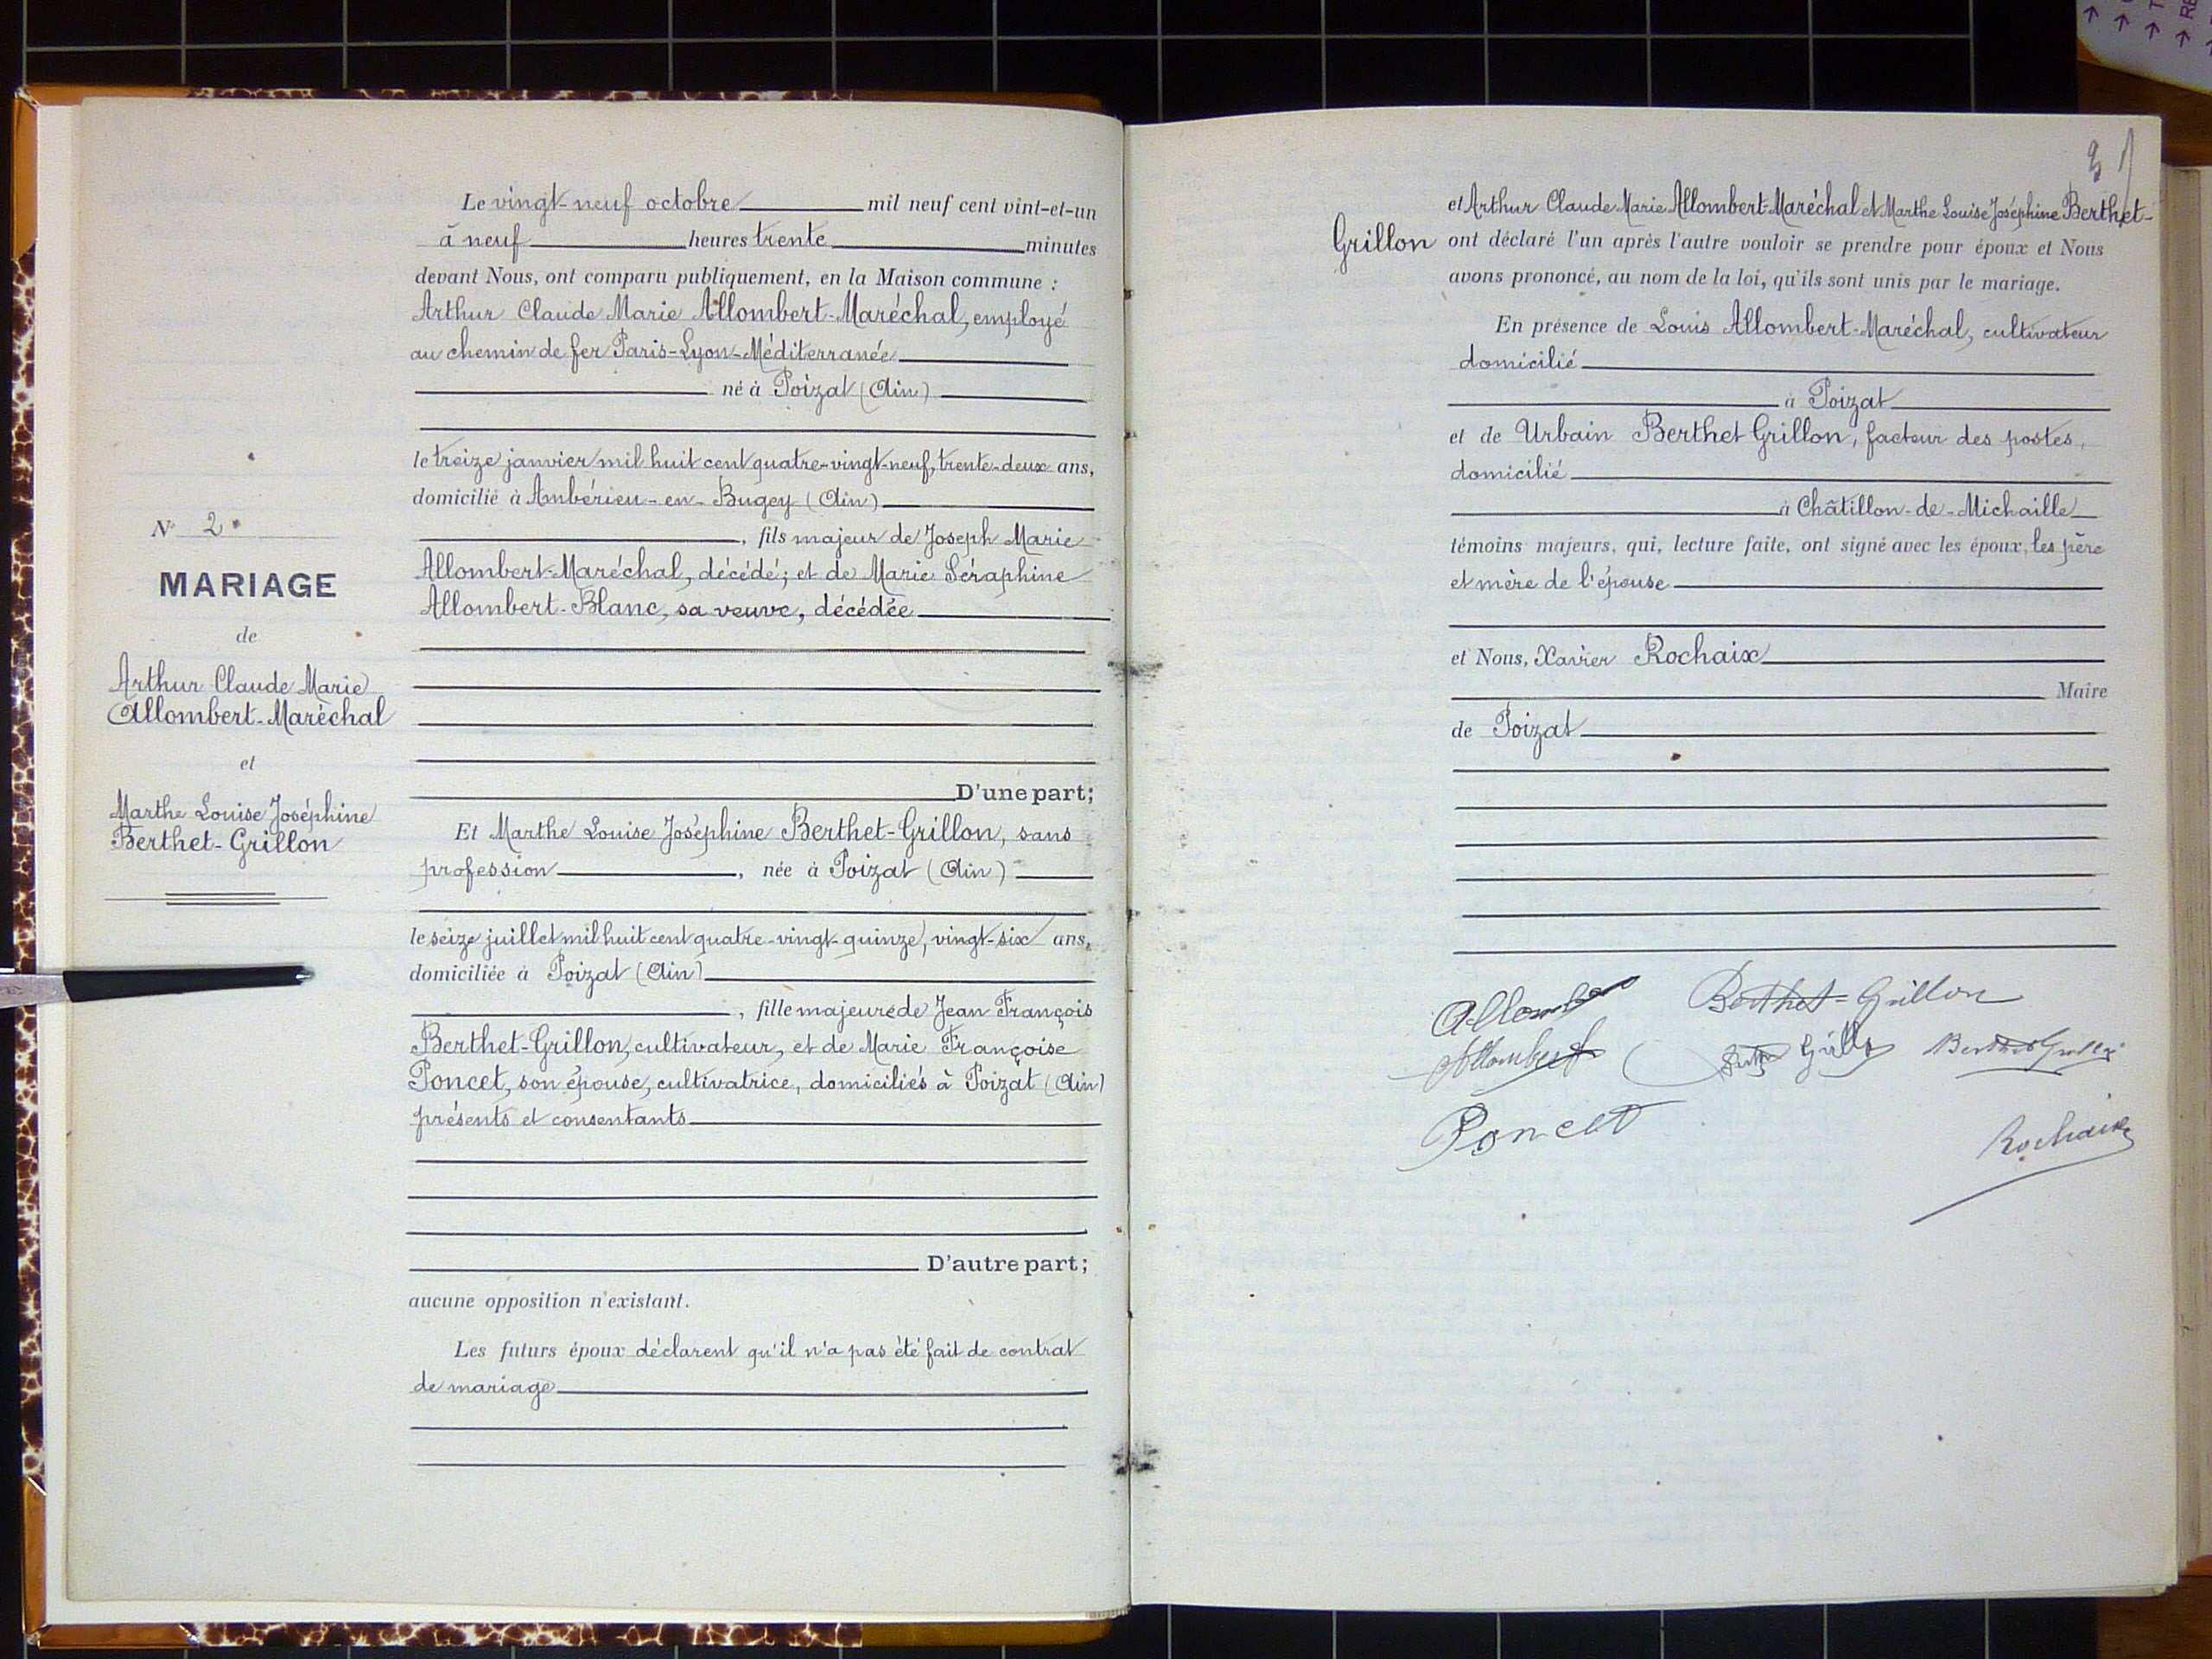 Le vingt-neuf octobre mil neuf cent vint-et-un
à neuf heures trente minutes
devant Nous, ont comparu publiquement, en la Maison commune :
Arthur Claude Marie Allombert-Maréchal, employé
au chemin de fer Paris-Lyon-Méditerranée
né à Poizat (Ain)
le treize janvier mil huit cent quatre-vingt-neuf, trente-deux ans,
domicilié à Ambérieu-en-Bugey (Ain)
, fils majeur de Joseph Marie
Allombert-Maréchal, décédé; et de Marie Séraphine
Allombert-Blanc, sa veuve, décédée
D'une part;
Et Marthe Louise Joséphine Berthet-Grillon, sans
profession, née à Poizat (Ain)
le seize juillet mil huit cent quatre-vingt-quinze, vingt-six ans,
domiciliée à Poizat (Ain)
, fille majeure de Jean François
Berthet-Grillon, cultivateur, et de Marie Françoise
Poncet, son épouse, cultivatrice, domiciliés à Poizat (Ain)
présents et consentants
D'autre part;
aucune opposition n'existant.
Les futurs époux déclarent qu'il n'a pas été fait de contrat
de mariage
N° 2
MARIAGE
de
Arthur Claude Marie
Allombert-Maréchal
et
Marthe Louise Joséphine
Berthet-Grillon
3
et Arthur Claude Marie Allombert-Maréchal et Marthe Louise Joséphine Berthet-
Grillon ont déclaré l'un après l'autre vouloir se prendre pour époux et Nous
avons prononcé, au nom de la loi, qu'ils sont unis par le mariage.
En présence de Louis Allombert-Maréchal, cultivateur
domicilié
à Poizat
et de Urbain Berthet Grillon, facteur des postes,
domicilié
à Châtillon-de-Michaille
témoins majeurs, qui, lecture faite, ont signé avec les époux, les père
et mère de l'épouse
et Nous, Xavier Rochaix
Maire
de Poizat
Berthet-Grillon
Allombert
Poncet
Rochaix